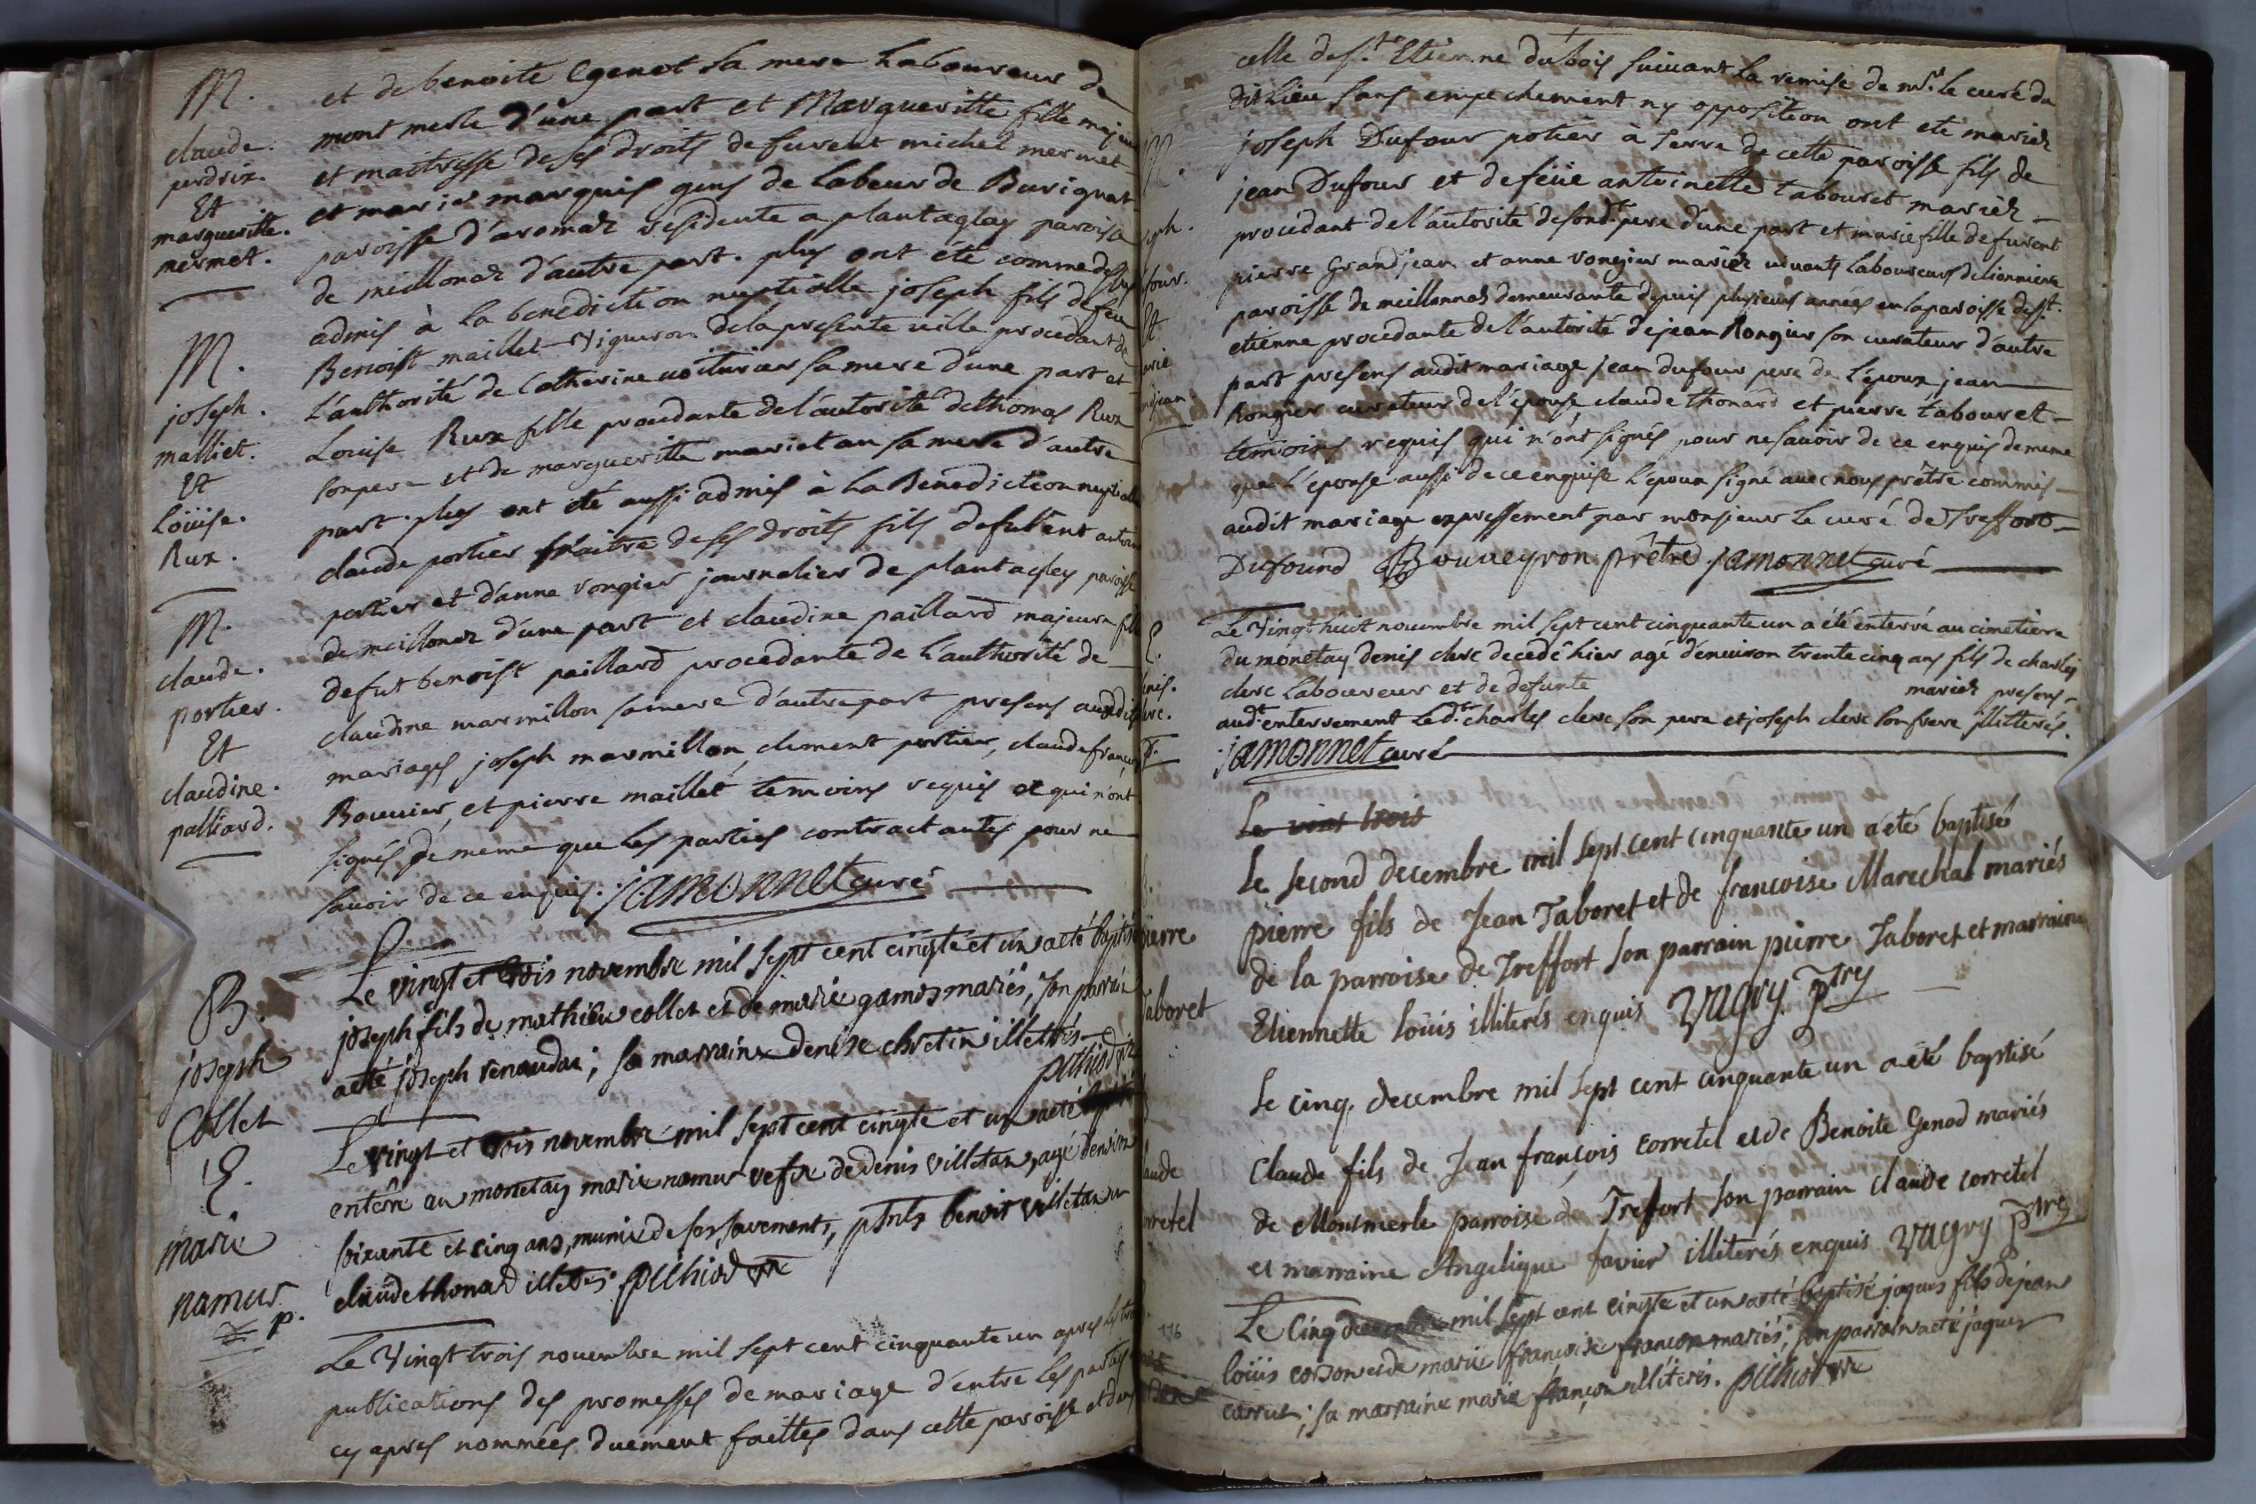 M.
claude.
perdrix.
Et
margueritte.
mermet.
et de benoite Cgenot sa mere Laboureur de
mont merle d'une part et Margueritte fille majeu
et maitresse de ses droits de furent michel mermet
et marie marquis gens de labeur de Burignat
paroisse d'aromaz residente a plantaglay paroisse
de meillonaz d'autre part. plus ont été comme dessus
admis à la benediction nuptialle joseph fils de feu
M.
joseph.
malliet.
Et
Loüise.
Rux.
Benoist maillet Vigneron de la presente ville procedant de
L'authorité de Catherine voiturier sa mere d'une part et
Louise Rux fille procedante de l'autorité de thomas Rux
son pere et de margueritte marietan sa mere d'autre
part. plus ont été aussi admis à La Benediction nuptialle
M.
claude.
portier.
Et
claudine.
palliard.
claude portier maitre de ses droits fils de furent antoine
portier et d'anne vongier journalier de plantagley paroisse
de meillonaz d'une part et claudine paillard majeure fille
de fut benoist paillard procedante de L'authorité de
claudine marmillon sa mere d'autre part presens audit
mariages joseph marmillon, clement portier, claude françois
Bouvier, et pierre maillet temoins requis et qui n'ont
signés de meme que les parties contractantes pour ne
savoir de ce enquis. jamonnet curé
B.
joseph
Collet
Le vingt et trois novembre mil sept cent cinqte et un a eté baptisé
joseph fils de mathieu collet et de marie gamos mariés, son parrain
a eté joseph renaudat; sa marraine denise chretin illetrés
pilliod ptre
E.
marie
namur.
p.
Le vingt et trois novembre mil sept cent cinqte et un a eté
enterre au monetay marie namur vefve de denis villetan, agé denviron
soixante et cinq ans, munie de ses sacrements, pnts benoit villetan
claude thonard illetres. pilliod ptre
Le Vingt trois novembre mil sept cent cinquante un apres les trois
publications des promesses de mariage d'entre les parties
cy apres nommées duement faittes dans cette paroisse et dans
celle de St Etienne du bois suivant la remise de mr. le curé du
dit Lieu sans empechement ny opposition ont eté mariez
joseph Dufour potier à terre de cette paroisse fils de
jean Dufour et de feüe antoinette tabouret mariez
procedant de l'autorité de sond. pere d'une part et marie fille de furent
pierre Grandjean et anne vongier mariez vivants Laboureurs de lionniere
paroisse de meillonnas demeurante depuis plusieurs années en la paroisse de St.
etienne procedante de l'autorité de jean Rongier son curateur d'autre
part presens audit mariage jean dufour pere de l'époux, jean
Rongier curateur de l'épouse, claude thonard et pierre tabouret
temoins requis qui n'ont signés pour ne savoir de ce enquis de meme
que l'epouse aussi de ce enquise l'epoux signé avec nous prêtre commis
audit mariage expressement par monsieur le curé de Treffort
Dufound Bouveyron prêtre jamonnet curé
Le Vingt huit novembre mil sept cent cinquante un a été enterré au cimetiere
du monetay denis clerc decedé hier agé d'environ trente cinq ans fils de charles
clerc Laboureur et de defunte mariez presens
audt enterrement Ledt. charles clerc son pere et joseph clerc son frere illiterés.
jamonnet curé
Le vint trois
pierre
taboret
Le second decembre mil sept cent cinquante un a été baptisé
pierre fils de Jean Taboret et de françoise Marechal mariés
de la parroise de Treffort son parrain pierre Taboret et marraine
Etiennette loüis illiterés enquis Vugry ptre
aude
orretel
Le cinq. decembre mil sept cent cinquante un a été baptisé
Claude fils de Jean françois corretel et de Benoite Genod mariés
de Montmerle parroise de Trefort son parrain claude corretel
et marraine Angelique favier illiterés enquis Vugry ptre
176
Le cinq decembre mil sept cent cinqte et un a eté baptisé jaques fils de jean
loüis corson et de marie françoise françon mariés; son parrain a eté jaques
carrut; sa marraine marie françon illiterés. pilliod ptre